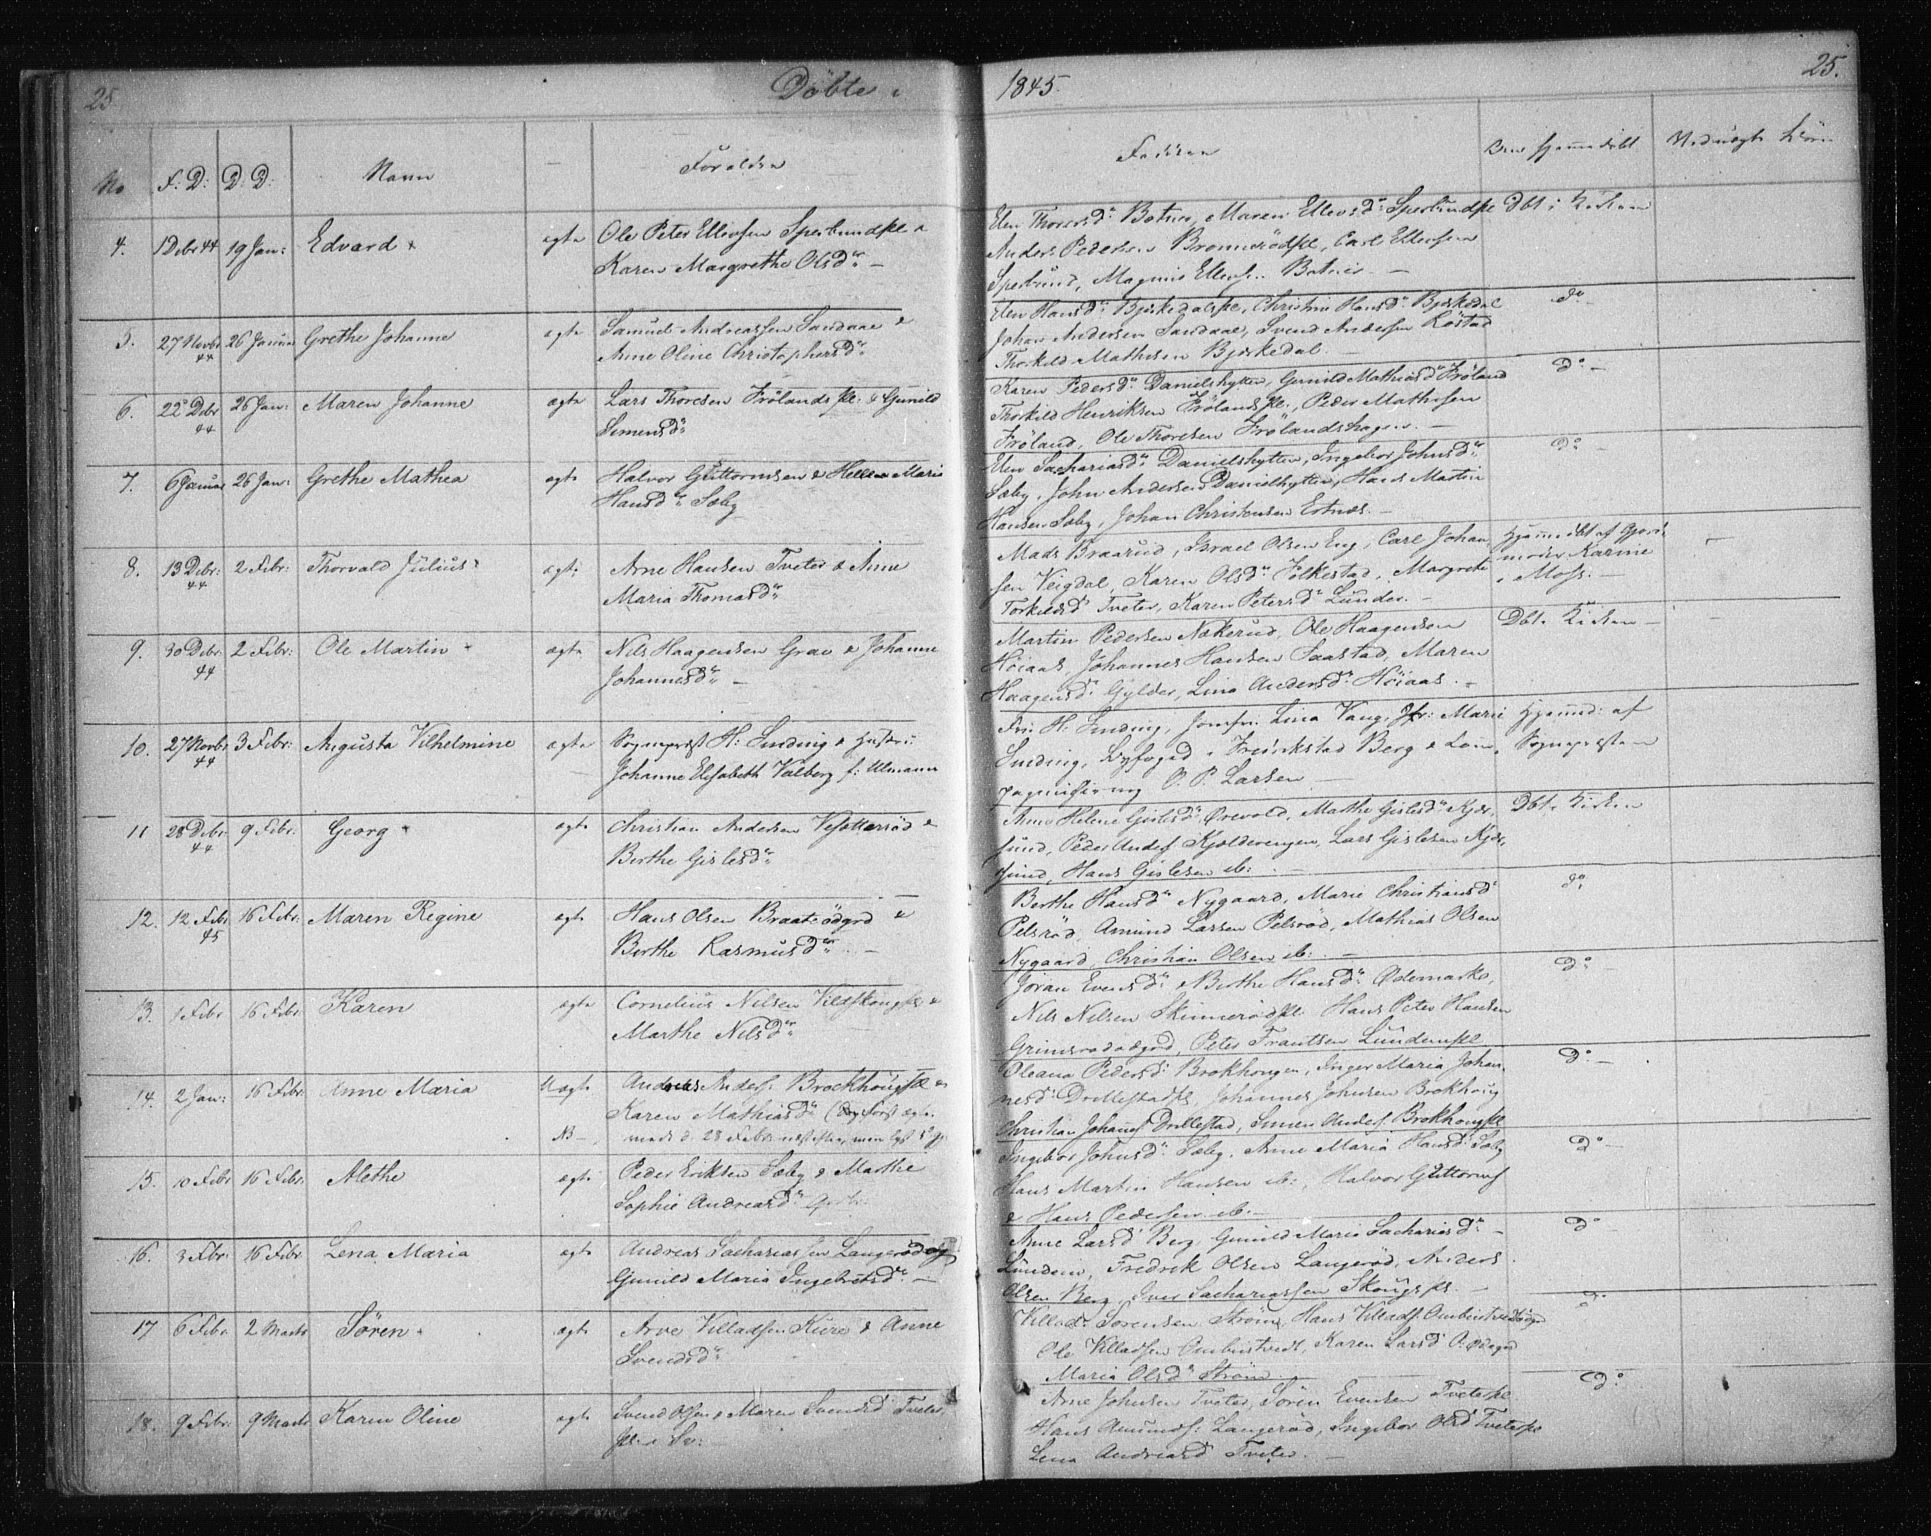 25 Döbte i 1845. 25.
No F: D: D: D: Navn Forældre Faddere Om hjemmedöbt
4. 1 Debr 44 19 Jan: Edvard ægte Ole Peter Ellevsen Sperbundpl &
Karen Margrethe Olsdr —
Elen Thoresdr Botner, Maren Ellevsdr Sperbundpl Dbt i Kirken
Anders Pedersen Brönnerödpl, Carl Ellevsen
Sperbund, Magnus Ellevsen Botner —
5. 27 Novbr 44 26 Januar Grethe Johanne ægte Samuel Andreassen Sandaae &
Anne Oline Christophersdr
Elen Hansdr Bjerkedalpl, Christine Hansdr Bjerkedal do
Johan Andersen Sandaae, Svend Andersen Röstad
Thorkild Mathisen Bjerkedal. —
6. 22 Debr 44 26 Jan: Maren Johanne ægte Lars Thoresen Frölandspl: & Gunild
Simensdr
Karen Pedersdr Danielshytten, Gunild Mathiasdr Fröland do —
Thorkild Henriksen Frölandspl., Peder Mathisen
Fröland, Ole Thoresen Frölandshagen. —
7. 6 Januar 26 Jan: Grethe Mathea ægte Halvor Guttormsen & Hellene Marie
Hansdr Sæby
Elen Sachariasdr Danielshytten, Ingebor Johnsdr do
Sæby, John Andersen Danielhytten, Hans Martin
Hansen Sæby, Johan Christensen Estnæs. —
8. 13 Debr: 44 2 Febr: Thorvald Julius ægte Arne Hansen Tveter & Anne
Maria Thomasdr
Mads Braarud, Israel Olsen Eng, Carl Johan Hjemmedbt af Gjord-
sen Veigdal, Karen Olsdr Folkestad, Margrete moder Karine
Torkildsd Tveter, Karen Petersdr Lunder. — i Moss. —
9. 30 Debr: 44 2 Febr: Ole Martin ægte Nils Haagensen Grav & Johanne
Johannesdr —
Martin Pedersen Nækerud, Ole Haagensen Dbt i Kirken —
Höiaas, Johannes Hansen Saastad, Maren
Haagensdr Gylder, Lina Andersdr Höiaas. —
10. 27 Novbr 44 3 Febr: Augusta Vilhelmine ægte Sognepræst H: Sinding & Hustru
Johanne Elisabeth Valborg f: Ulmann
Fru H: Sinding, Jomfru Lina Vang, Jfr: Marie Hjemmd: af
Sinding, Byfoged i Fredrikstad Berg & Sognepræsten
O. P. Larsen —
11 28 Debr 44 9 Febr: Georg ægte Christian Andersen &
Berthe Gislesdr
Anne Helene Gislesdr Orevold, Mathe Gislesdr Kjær- Dbt i Kirken
sund, Peder Anders Kjölderengen, Lars Gislesen Kjær-
sund, Hans Gislesen ib: —
12. 12 Febr 45 16 Febr: Maren Regine ægte Hans Olsen &
Berthe Rasmusdr —
Berthe Hansdr Nygaard, Marie Christiansd do
Pelsröd, Amund Larsen Pelsröd, Mathias Olsen
Nygaard, Christian Olsen ib: —
13. 1 Febr 16 Febr: Karen ægte Cornelius Nilsen Vildskougpl &
Marthe Nilsdr
Jöran Evensdr & Berthe Hansdr Ödemarks, do —
Nils Nilsen Skinnerödpl. Hans Peter Hansen
Grimsrödödgrd, Peter Frantsen Lundempl
14. 2 Jan: 16 Febr: Anne Maria Uægte Andreas Anders. Brockhougpl &
Karen Mathiasdr
NB —
Oleana Pedersd Brokhougen, Inger Maria Johan- do —
nesd Drillestadpl, Johannes Johnsen Brokhoug
Christian Johans Drillestad, Simen Anders. Brokhougpl
15. 10 Febr 16 Febr: Alethe ægte Peder Eriksen Sæby & Marthe
Sophie Andreasdr
Ingebor Johnsdr Sæby, Anne Maria Hansd Sæby do —
Hans Martin Hansen ib:, Halvor Guttorms
& Hans Pedersen ib: —
16. 3 Febr: 16 Febr: Lena Maria ægte Andreas Sachariassen Langeröd og
Gunild Maria Ingebretsdr —
Anne Larsd Berg, Gunild Maria Sachariasdr — do
Lundem, Fredrik Olsen Langeröd, Anders
Olsen Berg, Iver Sachariassen Skougpl. —
17 6 Febr 2 Marts Sören ægte Arve Villadsen Kure & Anne
Svendsdr
Villads Sörensen Ström, Hans Villads. do
Ole Villadsen, Karen Larsd
Maria Olsdr Ström —
18. 9 Febr: 9 Marts Karen Oline ægte Svend Olsen & Maren Svendsd Tveter,
Arne Johnsen Tveter, Sören Evensen Tveterpl do
Hans Amunds. Langeröd, Ingebor Olsd Tveterpl
Lena Andreasd Tveter. —